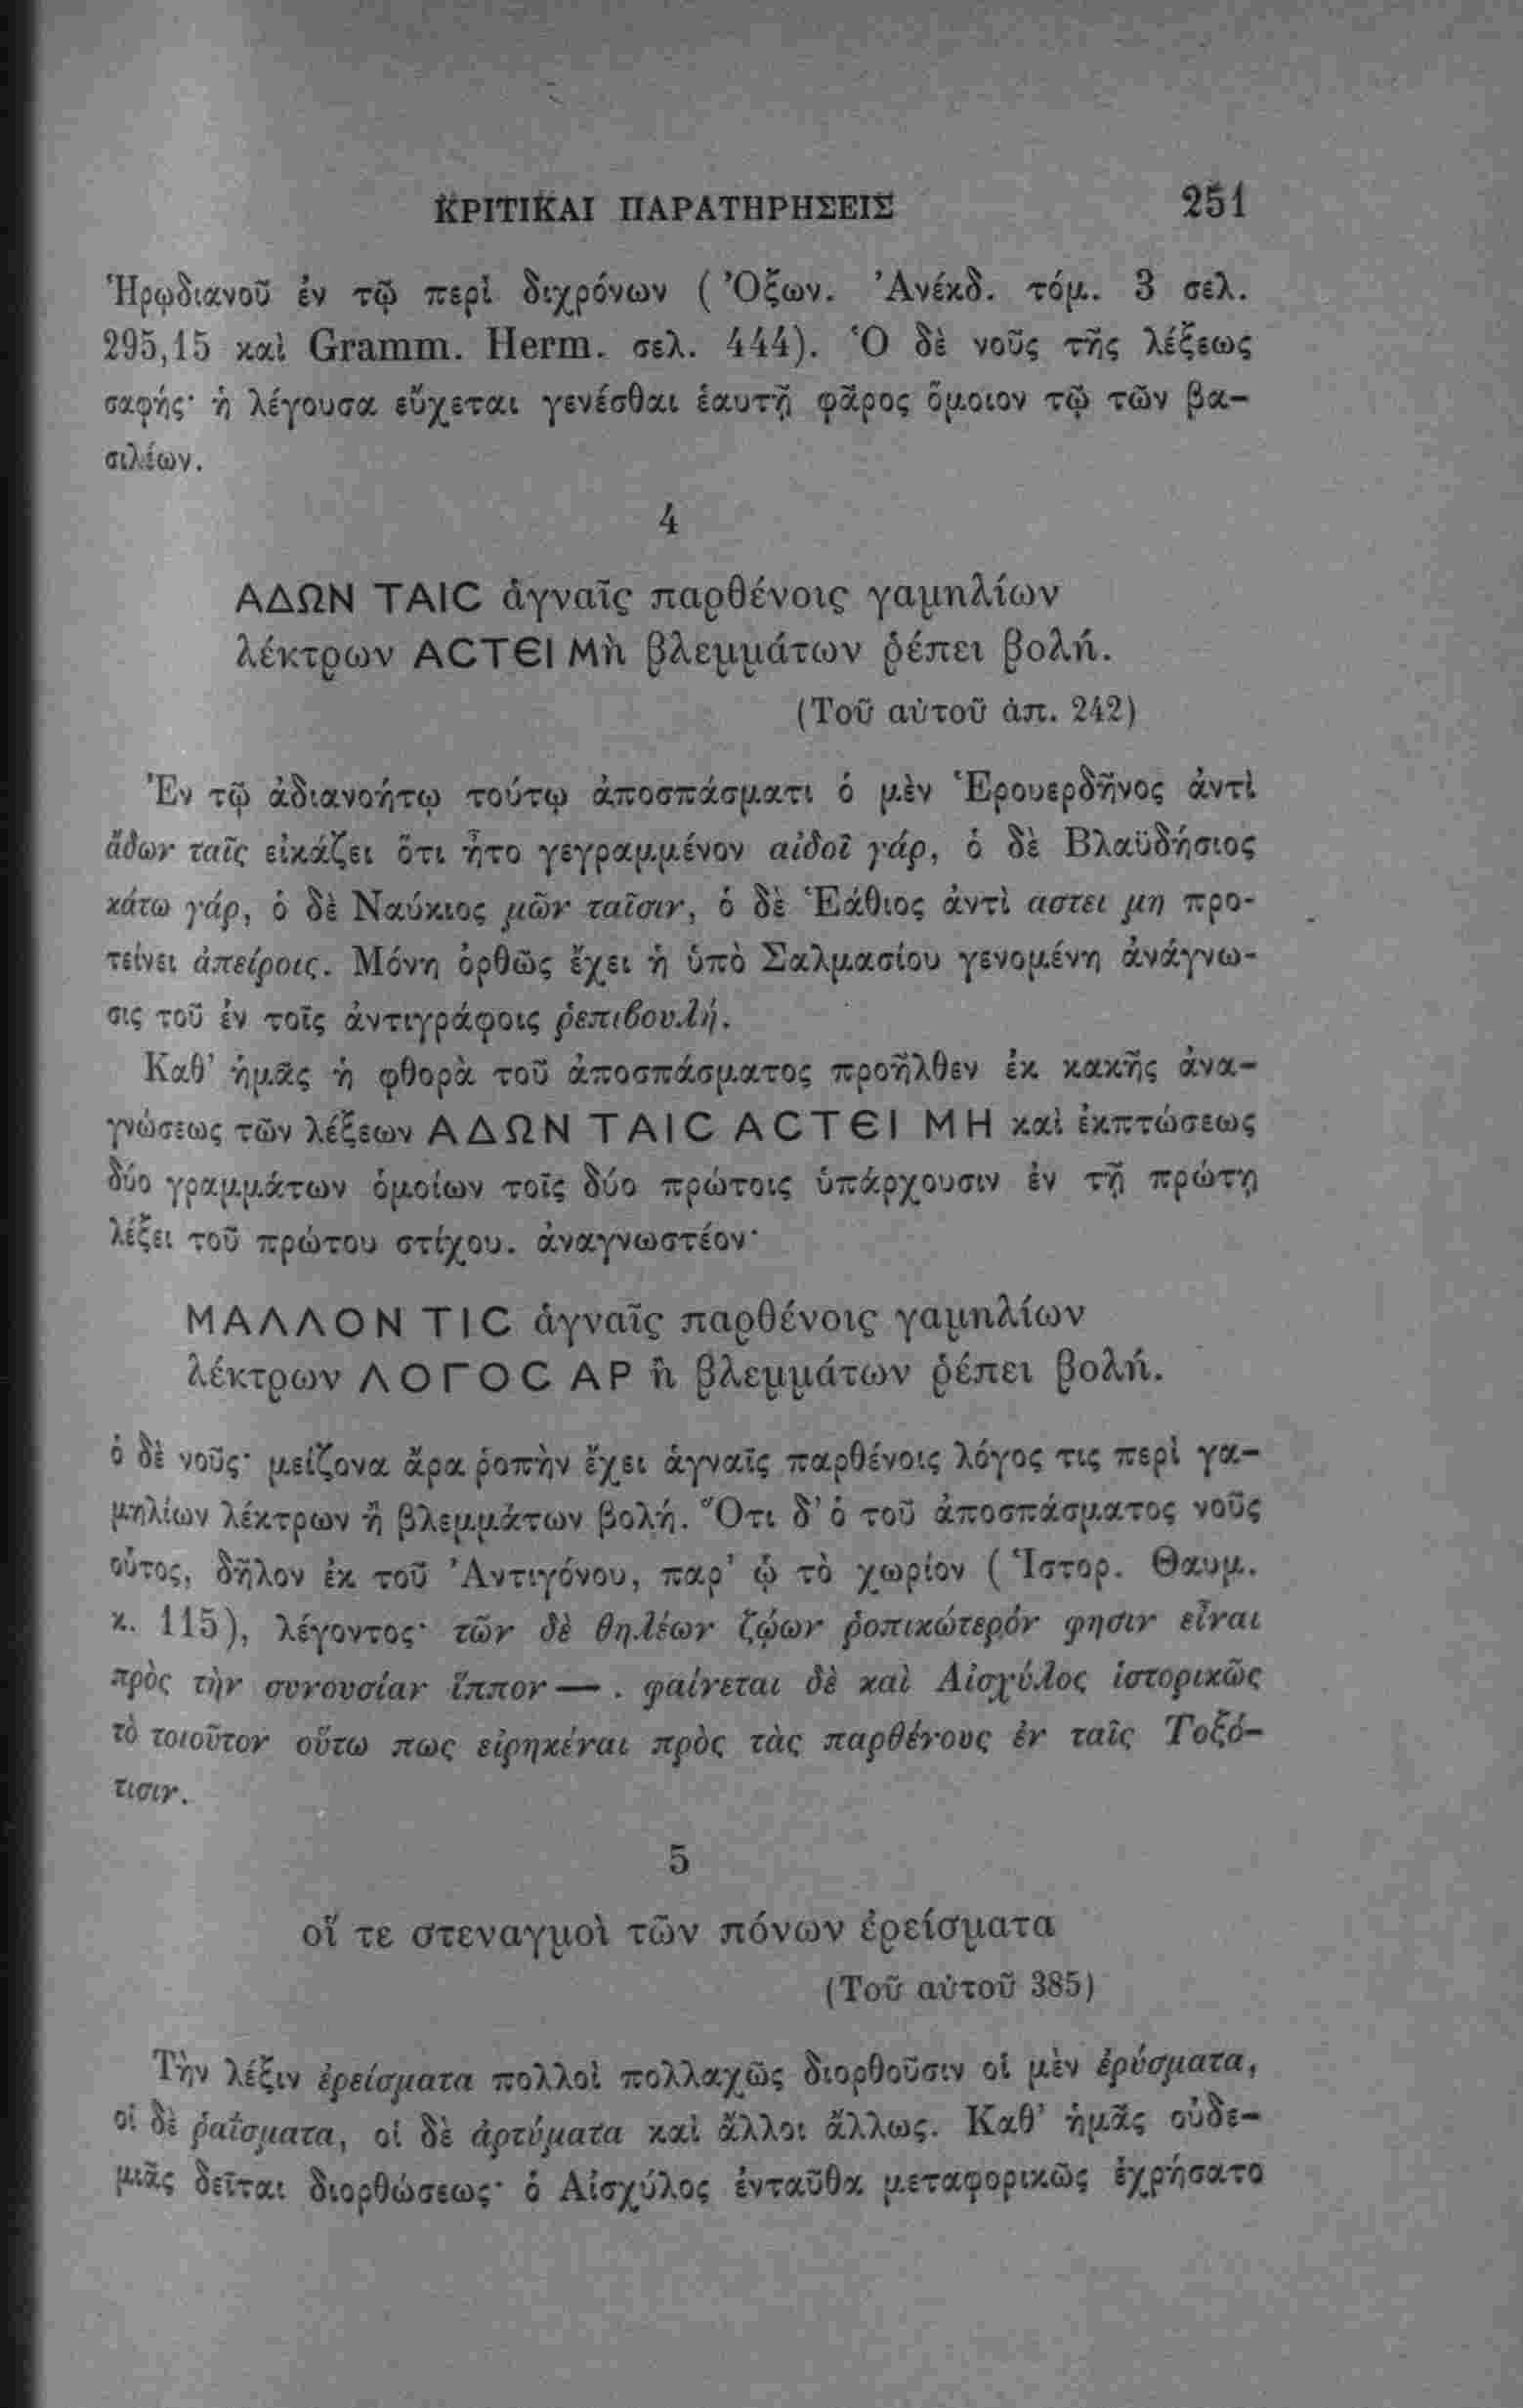 ΚΡΙΤΙΚΑΙ ΠΑΡΑΤΗΡΗΣΕΙΣ 251
Ἡρῳδιανοῦ ἐν τῷ περὶ διχρόνων (Ὀξων. Ἀνέκδ. τόμ. 3 σελ.
295,15 καὶ Gramm. Herm. σελ. 444). Ὁ δὲ νοῦς τῆς λέξεως
σαφής· ἡ λέγουσα εὔχεται γενέσθαι ἑαυτῇ φᾶρος ὅμοιον τῷ τῶν βα-
σιλέων.
4
ΑΔΩΝ ΤΑΙC ἁγναῖς παρθένοις γαμηλίων
λέκτρων ΑCΤЄΙ Μὴ βλεμμάτων ῥέπει βολή.
(Τοῦ αὐτοῦ ἀπ. 242)
Ἐν τῷ ἀδιανοήτῳ τούτῳ ἀποσπάσματι ὁ μὲν Ἑρουερδῆνος ἀντὶ
ἄδων ταῖς εἰκάζει ὅτι ἦτο γεγραμμένον αἰδοῖ γάρ, ὁ δὲ Βλαϋδήσιος
κάτω γάρ, ὁ δὲ Ναύκιος μῶν ταῖσιν, ὁ δὲ Ἑάθιος ἀντὶ αστει μη προ-
τείνει ἀπείροις. Μόνη ὀρθῶς ἔχει ἡ ὑπὸ Σαλμασίου γενομένη ἀνάγνω-
σις τοῦ ἐν τοῖς ἀντιγράφοις ῥεπιβουλή.
Καθ’ ἡμᾶς ἡ φθορὰ τοῦ ἀποσπάσματος προῆλθεν ἐκ κακῆς ἀνα-
γνώσεως τῶν λέξεων ΑΔΩΝ ΤΑΙC ΑCΤЄΙ ΜΗ καὶ ἐκπτώσεως
δύο γραμμάτων ὁμοίων τοῖς δύο πρώτοις ὑπάρχουσιν ἐν τῇ πρώτῃ
λέξει τοῦ πρώτου στίχου. ἀναγνωστέον·
ΜΑΛΛΟΝ ΤΙC ἁγναῖς παρθένοις γαμηλίων
λέκτρων ΛΟΓΟC ΑΡ ἢ βλεμμάτων ῥέπει βολή.
ὁ δὲ νοῦς· μείζονα ἄρα ῥοπὴν ἔχει ἁγναῖς παρθένοις λόγος τις περὶ γα-
μηλίων λέκτρων ἢ βλεμμάτων βολή. Ὅτι δ’ ὁ τοῦ ἀποσπάσματος νοῦς
οὗτος, δῆλον ἐκ τοῦ Ἀντιγόνου, παρ’ ᾧ τὸ χωρίον (Ἱστορ. Θαυμ.
κ. 115), λέγοντος· τῶν δὲ θηλέων ζῴων ῥοπικώτερόν φησιν εἶναι
πρὸς τὴν συνουσίαν ἵππον — . φαίνεται δὲ καὶ Αἰσχύλος ἱστορικῶς
τὸ τοιοῦτον οὕτω πως εἰρηκέναι πρὸς τὰς παρθένους ἐν ταῖς Τοξό-
τισιν.
5
οἵ τε στεναγμοὶ τῶν πόνων ἐρείσματα
(Τοῦ αὐτοῦ 385)
Τὴν λέξιν ἐρείσματα πολλοὶ πολλαχῶς διορθοῦσιν οἱ μὲν ἐρύσματα,
οἱ δὲ ῥαΐσματα, οἱ δὲ ἀρτύματα καὶ ἄλλοι ἄλλως. Καθ’ ἡμᾶς οὐδε-
μιᾶς δεῖται διορθώσεως· ὁ Αἰσχύλος ἐνταῦθα μεταφορικῶς ἐχρήσατο